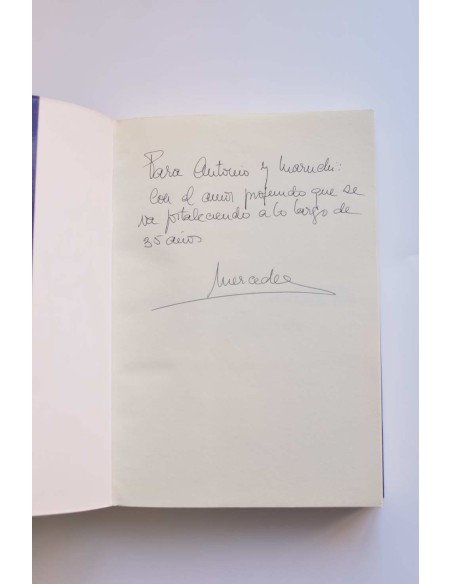 Para Antonio y Maruchi:
Con el amor profundo que se
va fortaleciendo a lo largo de
35 años
Mercedes